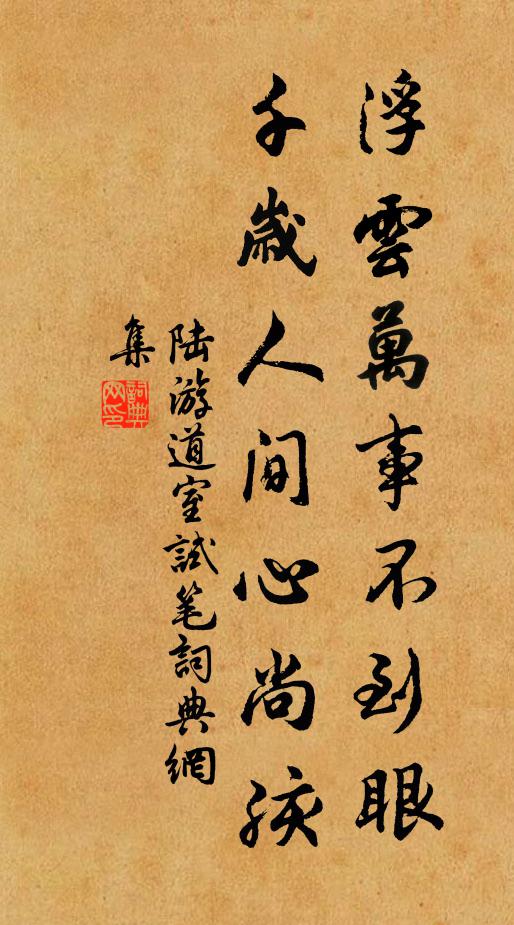 浮雲萬事不到眼
千歲人間心尚孩
陸游道室試笔詞典網
集
詞典网印